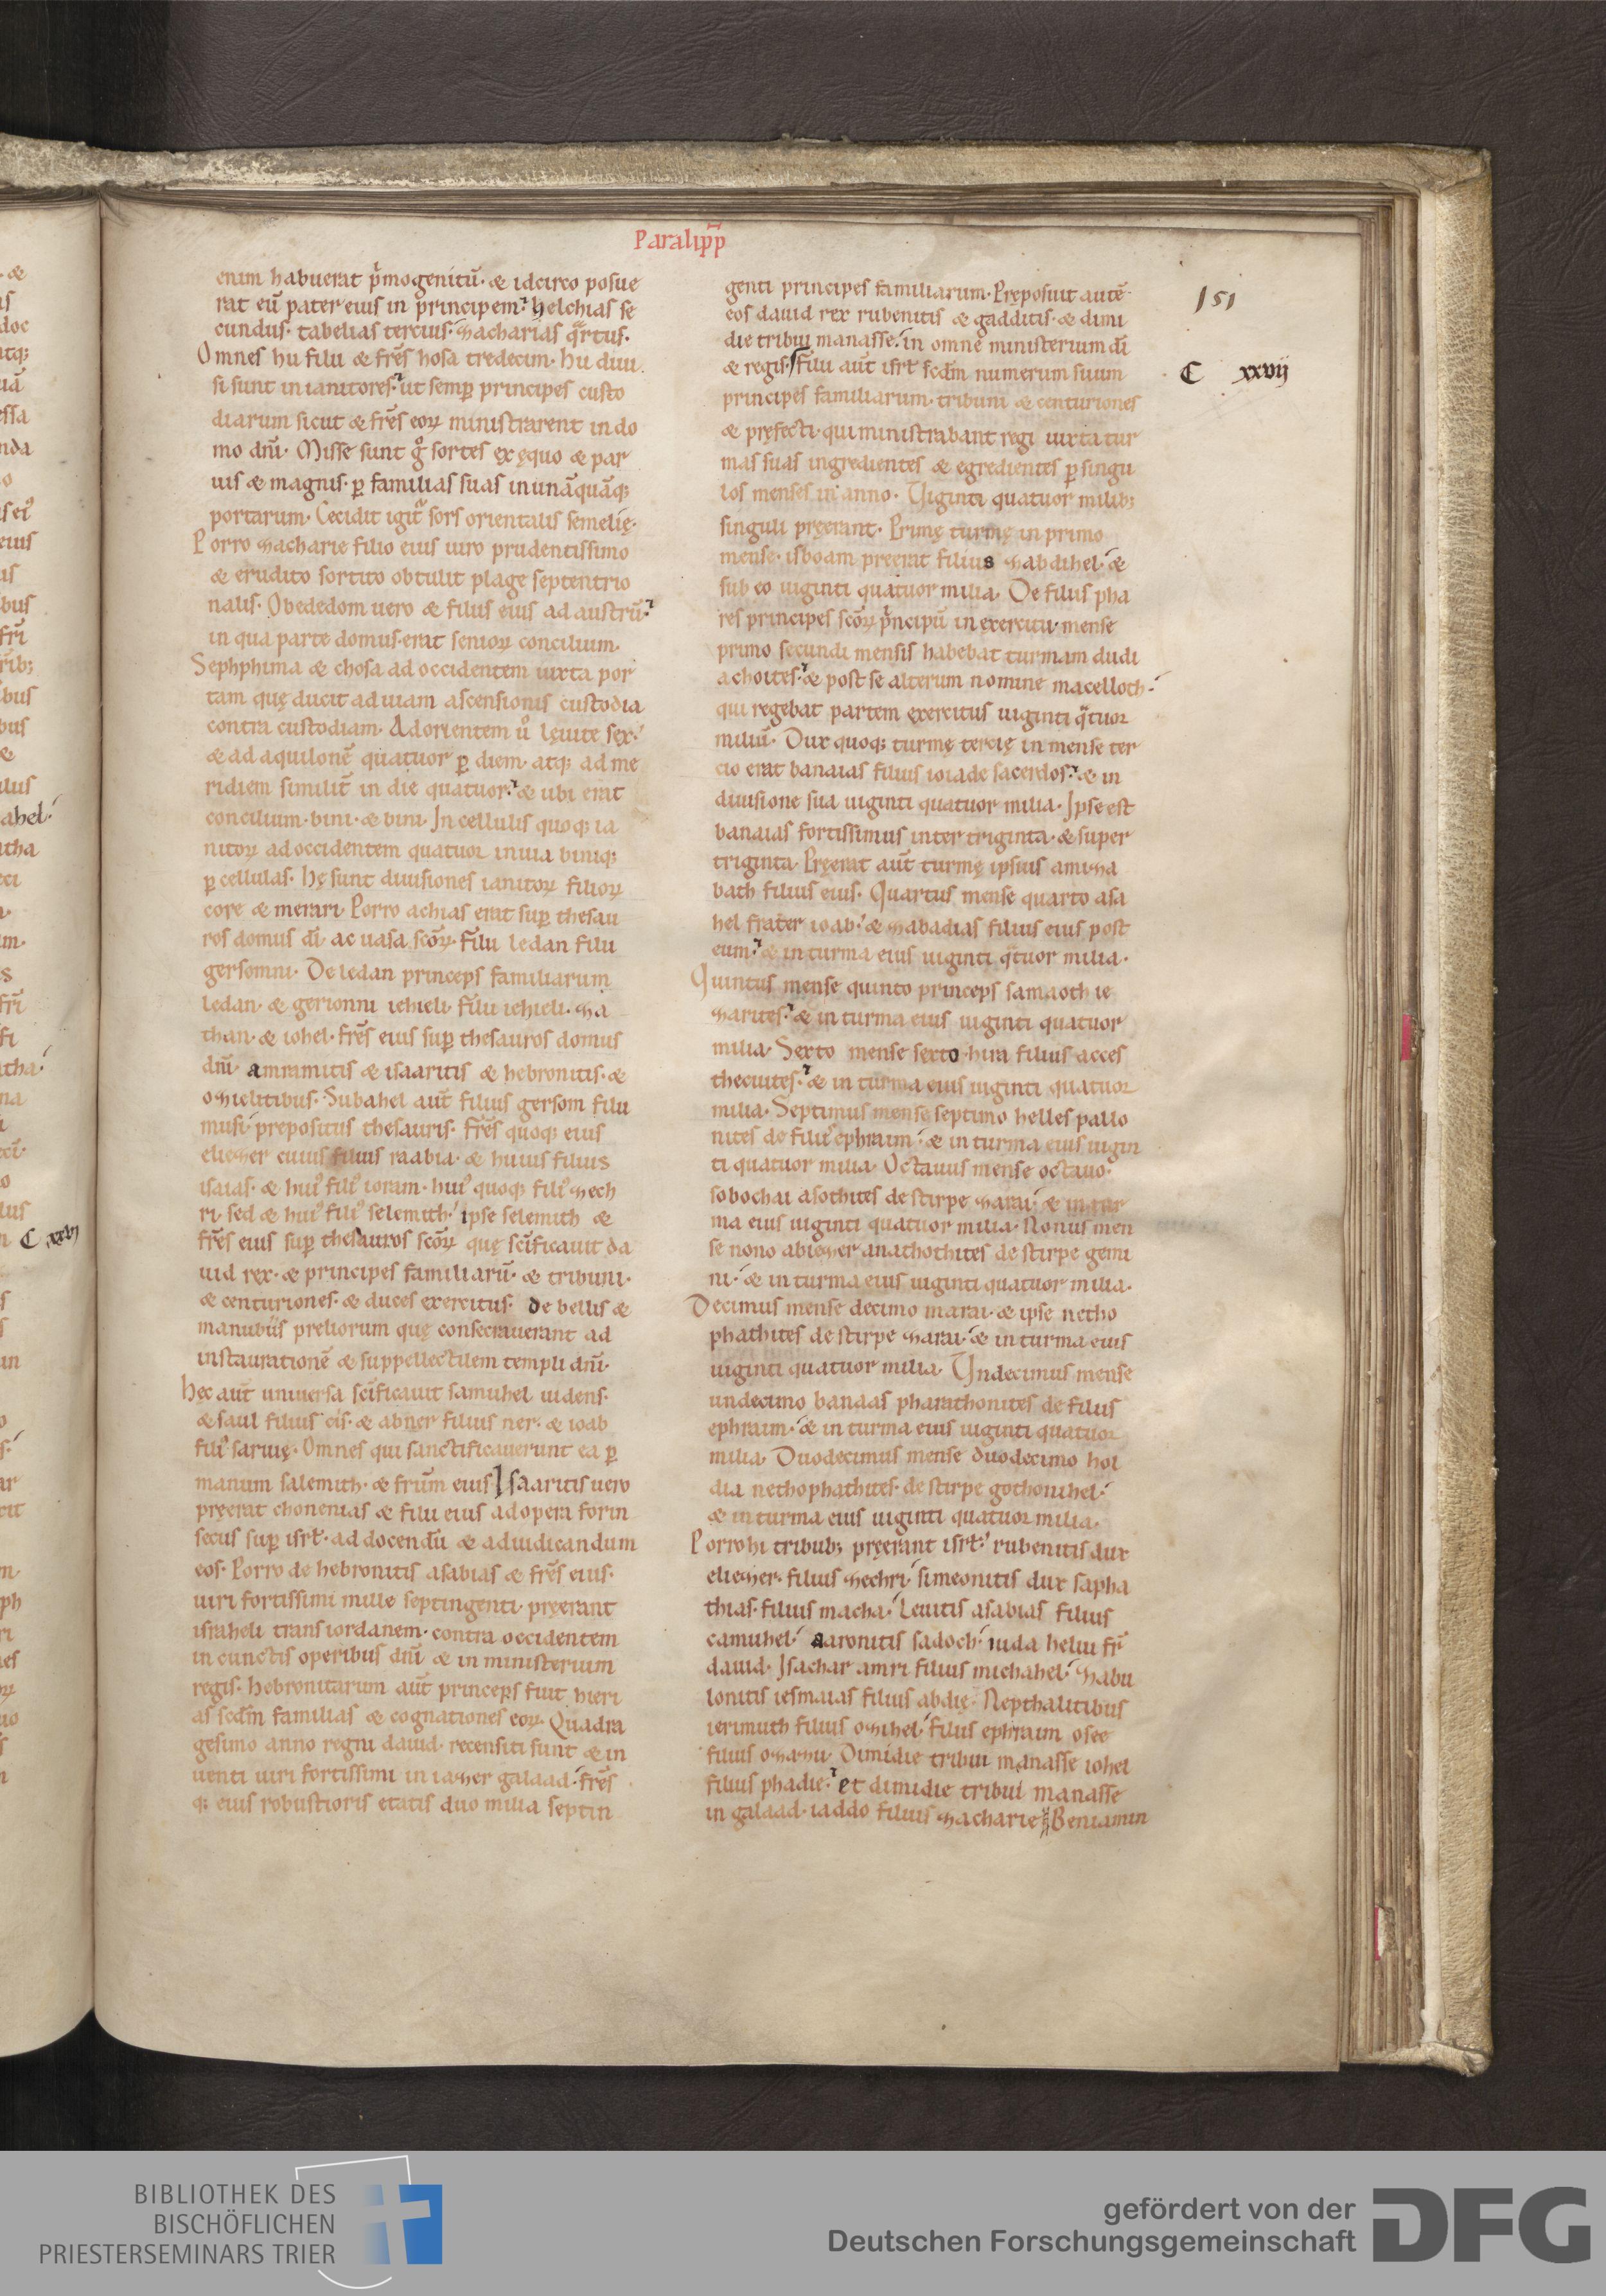 Paralipp̄
enim habuerat p̍mogenitū· & idcirco posue
rat eū pater eius in principem· helchias se
cundus· tabelias tercius· zacharias qᵃrtus·
Omnes hii filii & fr̄es hosa tredecim· Hii diui
si sunt in ianitores· ut semꝑ principes custo
diarum sicut & fr̄es eoꝝ ministrarent in do
mo dn̄i· Misse sunt gͦ sortes ex ęquo & par
uis & magnis· ꝑ familias suas in unāquāq;
portarum· Cecidit igit͛ sors orientalis semelię·
Porro zacharie filio eius uiro prudentissimo
& erudito sortito obtulit plage septentrio
nalis· Obededom uero & filiis eius ad austrū·
in qua parte domus erat senioꝝ concilium·
Sephphima & chosa ad occidentem iuxta por
tam quę ducit ad uiam ascensionis custodia
contra custodiam· Ad orientem uͦ lęuite sex·
& ad aquilonē quatuor ꝑ diem· atq; ad me
ridiem similit̄ in die quatuor· & ubi erat
concilium· bini· & bini· In cellulis quoq; ia
nitoꝝ ad occidentem quatuor in uia biniq;
ꝑ cellulas· Hę sunt diuisiones ianitoꝝ filioꝝ
core & merari· Porro achias erat suꝑ thesau
ros domus dī· ac uasa scōꝝ· Filii ledan filii
gersomni· De ledan princeps familiarum
ledan· & gerionni iehieli· filii iehieli· za
than· & iohel· fr̄es eius suꝑ thesauros domus
dn̄i· amramitis & isaaritis & hebronitis· &
ozielitibus· Subahel aut̄ filius gersom filii
musi prepositus thesauris· fr̄es quoq; eius
eliezer cuius filius raabia· & huius filius
isaias· & hui᾽ fili᾽ ioram· hui᾽ quoq; fili᾽ zech
ri· sed & hui᾽ fili᾽ selemith· ipse selemith &
fr̄es eius suꝑ thesauros scōꝝ quę scīficauit da
uid rex· & principes familiarū· & tribuni·
& centuriones· & duces exercitus· de bellis &
manubiis preliorum quę consecrauerant ad
instaurationē & suppellectilem templi dn̄i·
Hęc aut̄ uniuersa scīficauit samuhel uidens·
& saul filius cis· & abner filius ner· & ioab
fili᾽ saruię· Omnes qui sanctificauerunt ea ꝑ
manum salemith· & frūm eius Isaaritis uero
pręerat chonenias & filii eius ad opera forin
secus suꝑ isrł· ad docendū & ad iudicandum
eos· Porro de hebronitis asabias & fr̄es eius·
uiri fortissimi mille septingenti pręerant
israheli trans iordanem· contra occidentem
in cunctis operibus dn̄i & in ministerium
regis· hebronitarum aut̄ princeps fuit hieri
as scdm̄ familias & cognationes eoꝝ· Quadra
gesimo anno regni dauid· recensiti sunt & in
uenti uiri fortissimi in iazer galaad· fr̄es
q; eius robustioris etatis duo milia septin
genti principes familiarum· Pręposuit autē
eos dauid rex rubenitis & gadditis· & dimi
die tribui manasse· in omne ministerium dī
& regis· Filii aut̄ isrł scdm̄ numerum suum
principes familiarum· tribuni & centuriones
& pręfecti· qui ministrabant regi iuxta tur
mas suas ingredientes & egredientes ꝑ singu
los menses in anno· Uiginti quatuor milib;
singuli pręerant· Primę turmę in primo
mense· isboam preerat filius zabdihel· &
sub eo uiginti quatuor milia· De filiis pha
res principes scōꝝ p̍ncipū in exercitu· mense
primo secundi mensis habebat turmam dudi
achoites· & post se alterum nomine macelloth·
qui regebat partem exercitus uiginti qᵃtuor
miliū· Dux quoq; turmę tercię in mense ter
cio erat banaias filius ioiade sacerdos· & in
diuisione sua uiginti quatuor milia· Ipse est
banaias fortissimus inter triginta· & super
triginta· Pręerat aut̄ turmę ipsius amiza
bath filius eius· Quartus mense quarto asa
hel frater ioab· & zabadias filius eius post
eum· & in turma eius uiginti qᵃtuor milia·
Quintus mense quinto princeps samaoth ie
zarites· & in turma eius uiginti quatuor
milia· Sexto mense sexto hira filius acces
thecuites· & in turma eius uiginti quatuor
milia· Septimus mense septimo helles pallo
nites de filii᾽ ephraim· & in turma eius uigin
ti quatuor milia· Octauus mense octauo·
sobochai asothites de stirpe zarai· & in tur
ma eius uiginti quatuor milia· Nonus men
se nono abiezer anathothites de stirpe gemi
ni· & in turma eius uiginti quatuor milia·
Decimus mense decimo marai· & ipse netho
phathites de stirpe zarai· & in turma eius
uiginti quatuor milia· Undecimus mense
undecimo banaas pharathonites de filiis
ephraim· & in turma eius uiginti quatuor
milia· Duodecimus mense duodecimo hol
dia nethophathites· de stirpe gothonihel·
& in turma eius uiginti quatuor milia·
Porro hi tribub; pręerant isrł· rubenitis dux
eliezer· filius zechri· simeonitis dux sapha
thias· filius macha· Leuitis asabias filius
camuhel· aaronitis sadoch· iuda heliu fr̄
dauid· Isachar amri filius michahel· zabu
lonitis iesmaias filius abdię· Nepthalitibus
ierimuth filius ozihel· filiis ephraim osee
filius ozaziu· Dimidie tribui manasse iohel
filius phadie· et dimidie tribui manasse
in galaad· iaddo filius zacharie· Beniamin
151
C xxvij
C xxvi
BIBLIOTHEK DES
BISCHÖFLICHEN
PRIESTERSEMINARS TRIER
gefördert von der
Deutschen Forschungsgemeinschaft
DFG